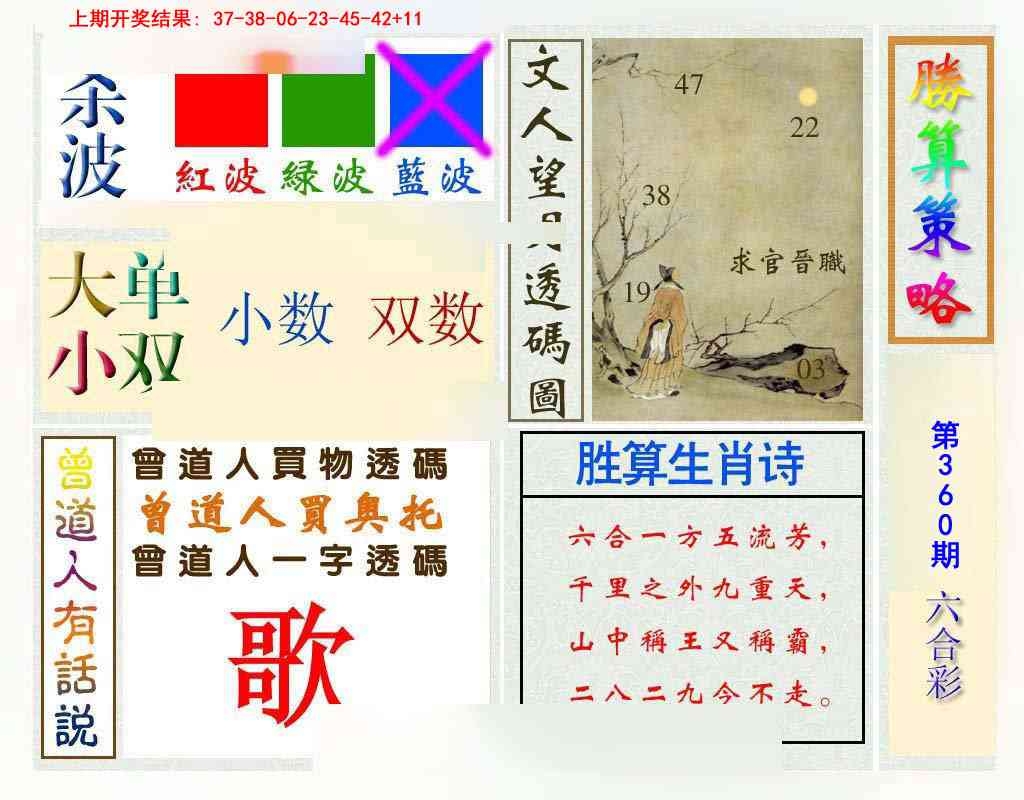 上期开奖结果: 37-38-06-23-45-42+11
波
紅波 緑波 藍波
大单
小双
小数 双数
文人望月透碼圖
47
22
38
求官晉職
19
03
勝算策略
第360期
六合彩
曾道人有話説
曾道人買物透碼
曾道人買奥托
曾道人一字透碼
歌
胜算生肖诗
六合一方五流芳，
千里之外九重天，
山中稱王又稱霸，
二八二九今不走。